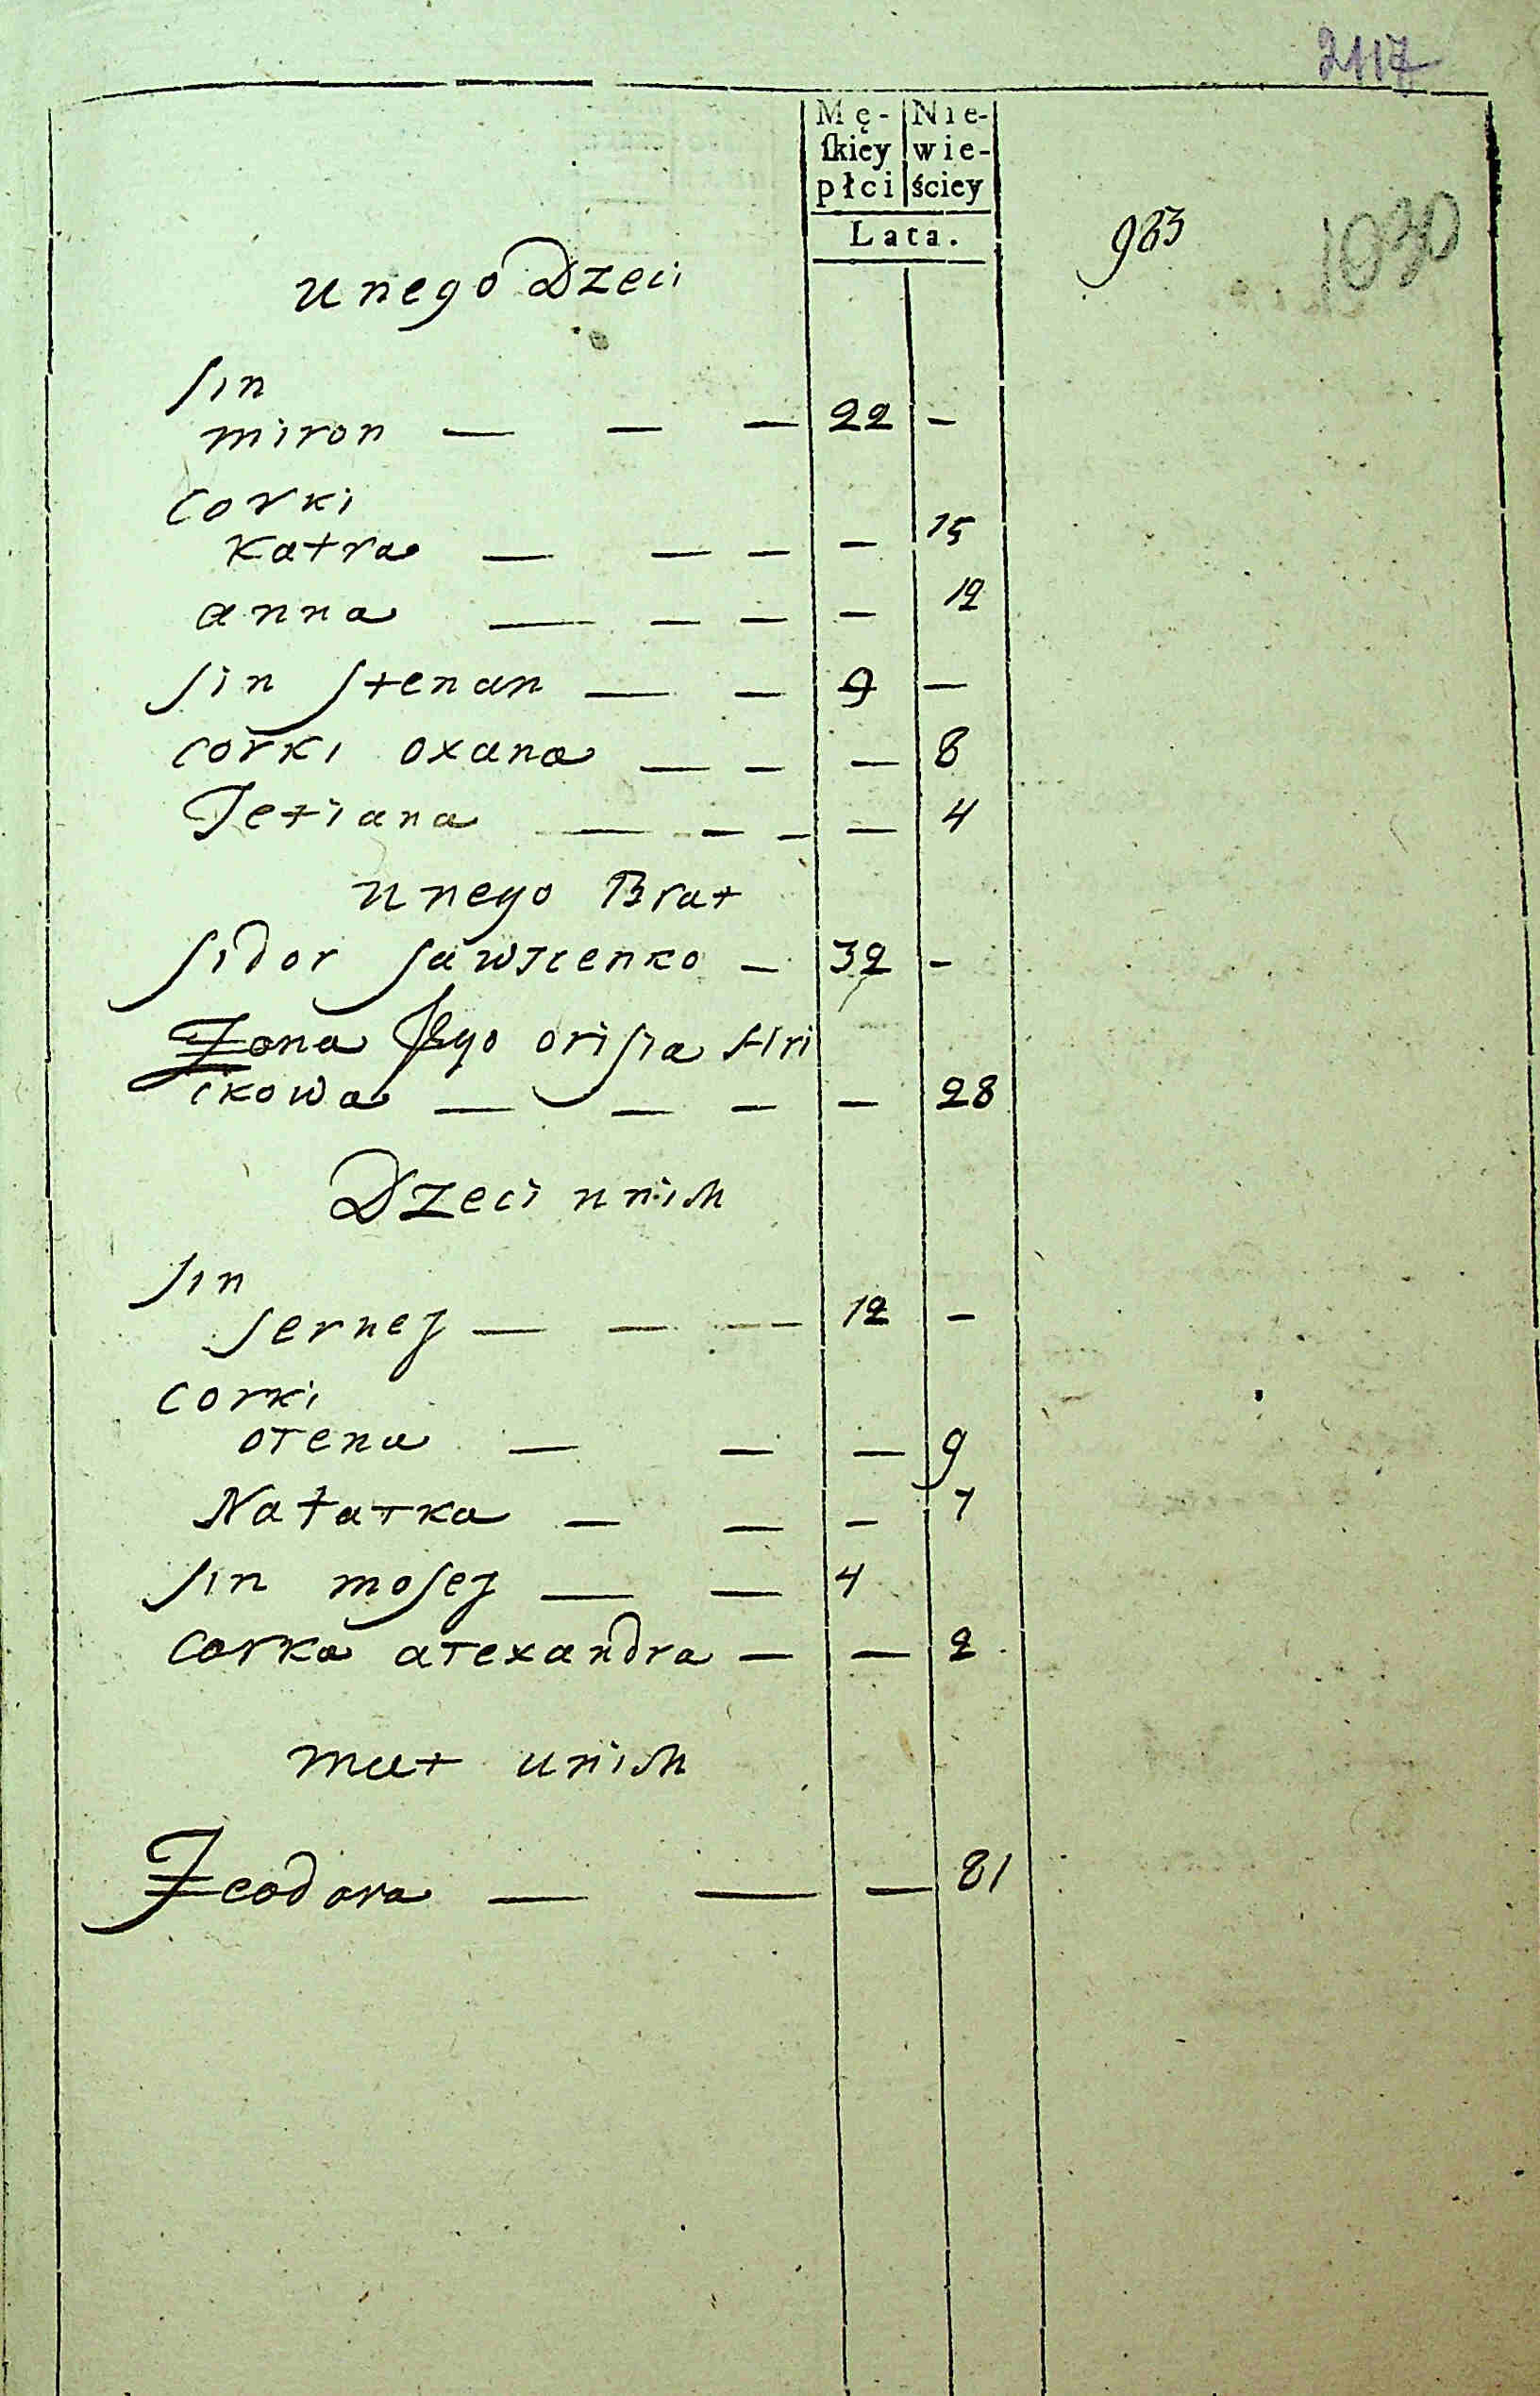 2117
Mę- Nie-
ſkiey wie-
płci ściey
Lata.
983
1030
u nego Dzeci
sin
miron — — — 22 —
corki
Katra — — — — 15
anna — — — — 12
sin stenan — — 9 —
corki oxana — — — 8
Tetiana — — — — 4
u nego Brat
sidor sawscenko — 32 —
Zona Jego orisia Hri
ckowa — — — — 28
Dzeci u nich
sin
sernej — — — 12 —
corki
olena — — — 9
Natałka — — — 7
sin mosej — — 4
corka alexandra — — 2
mat u nich
Feodora — — — 81